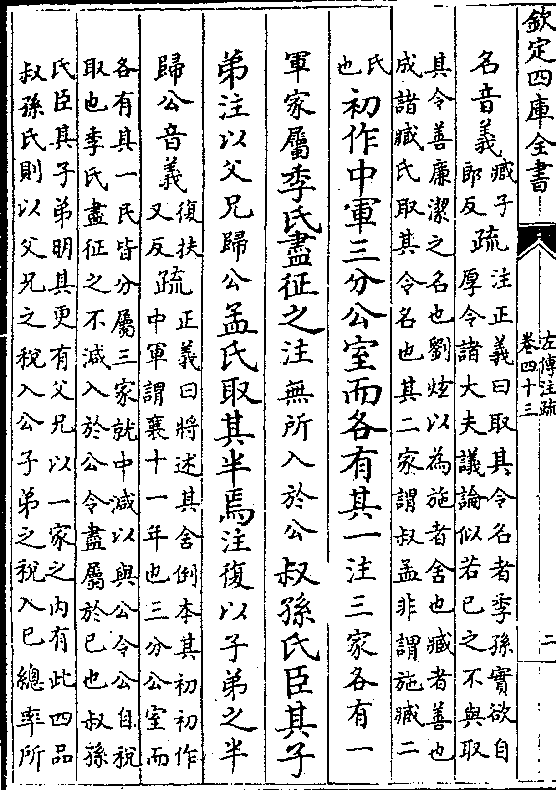 欽定四庫全書
左傳注疏
卷四十三
二
名音義
臧子
郎反
疏
注正義曰取其令名者季孫實欲自
厚令諸大夫議論似若已之不與取
其令善廉潔之名也劉炫以為施者舍也臧者善也
成諸臧氏取其令名也其二家謂叔孟非謂施臧二
氏
也
初作中軍三分公室而各有其一注三家各有一
軍家屬季氏盡征之注無所入於公叔孫氏臣其子
弟注以父兄歸公孟氏取其半焉注復以子弟之半
歸公音義
復扶
又反
疏
正義曰將述其舍倒本其初初作
中軍謂襄十一年也三分公室而
各有其一民皆分屬三家就中減以與公令公自稅
取也季氏盡征之不減入於公令盡屬於已也叔孫
氏臣其子弟明其更有父兄以一家之內有此四品
叔孫氏則以父兄之稅入公子弟之稅入已總率所